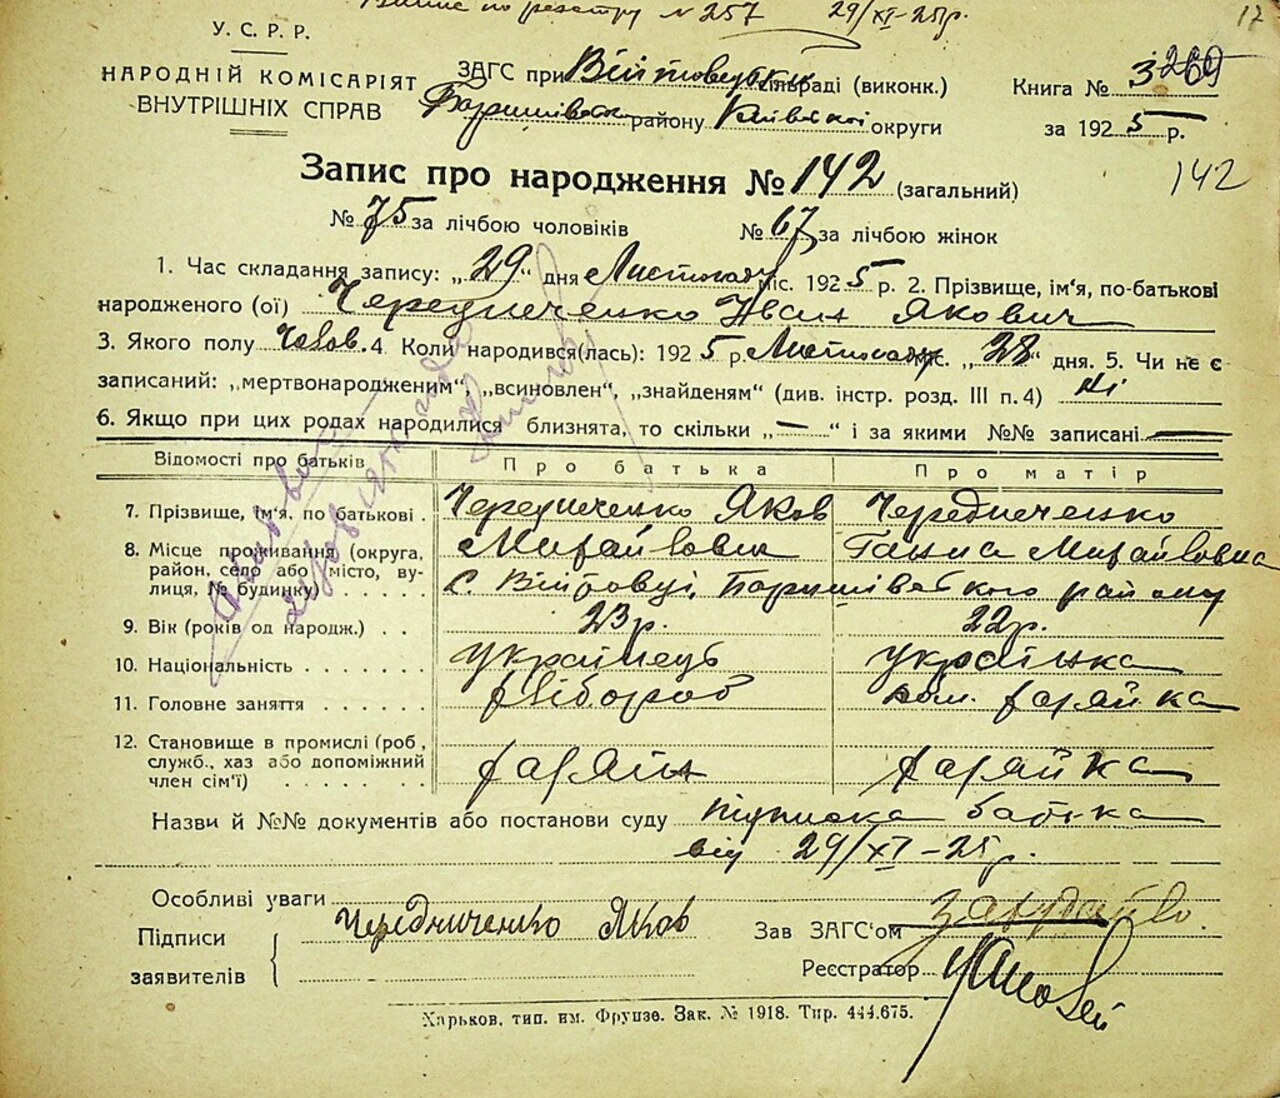 Витяг по реєстру № 257 29/XI-25р.
17
У. С. Р. Р.
НАРОДНІЙ КОМІСАРІЯТ
ВНУТРІШНІХ СПРАВ
ЗАГС при Війтовецьки сільраді (виконк.)
Баришівськ району Київської округи
Книга № 3 269
за 1925 р.
Запис про народження № 142 (загальний)
142
№ 75 за лічбою чоловіків № 67 за лічбою жінок
1. Час складання запису: „29“ дня Листопаду міс. 1925 р. 2. Прізвище, ім‘я, по-батькові
народженого (ої) Чередниченко Іван Якович
3. Якого полу Чолов. 4 Коли народився(лась): 1925 р. Листопаду міс. „28“ дня. 5. Чи не є
записаний: „мертвонародженим“, „всиновлен“, „знайденям“ (див. інстр. розд. III п. 4) ні
6. Якщо при цих родах народилися близнята, то скільки „—“ і за якими №№ записані —
Відомості про батьків Про батька Про матір
7. Прізвище, ім‘я, по батькові . Чередниченко Яков Чередниченко
Михайлович Ганна Михайловна
8. Місце проживання (округа,
район, село або (місто, ву-
лиця, № будинку) . . . . . с. Війтовці, Баришівського району
9. Вік (років од народж.) . . 23 р. 22 р.
10. Національність . . . . . . . Українець Українка
11. Головне заняття . . . . . . хлібороб дом. хазяйка
12. Становище в промислі (роб,
служб., хаз або допоміжний
член сім‘ї) . . . . . . . хазяїн хазяйка
Назви й №№ документів або постанови суду підписка батька
від 29/XI-25р.
Особливі уваги
Підписи
заявителів
Чередниченко Яков
Зав ЗАГС‘ом
Реєстратор
Харьков, тип. им. Фрунзе. Зак. № 1918. Тир. 444.675.